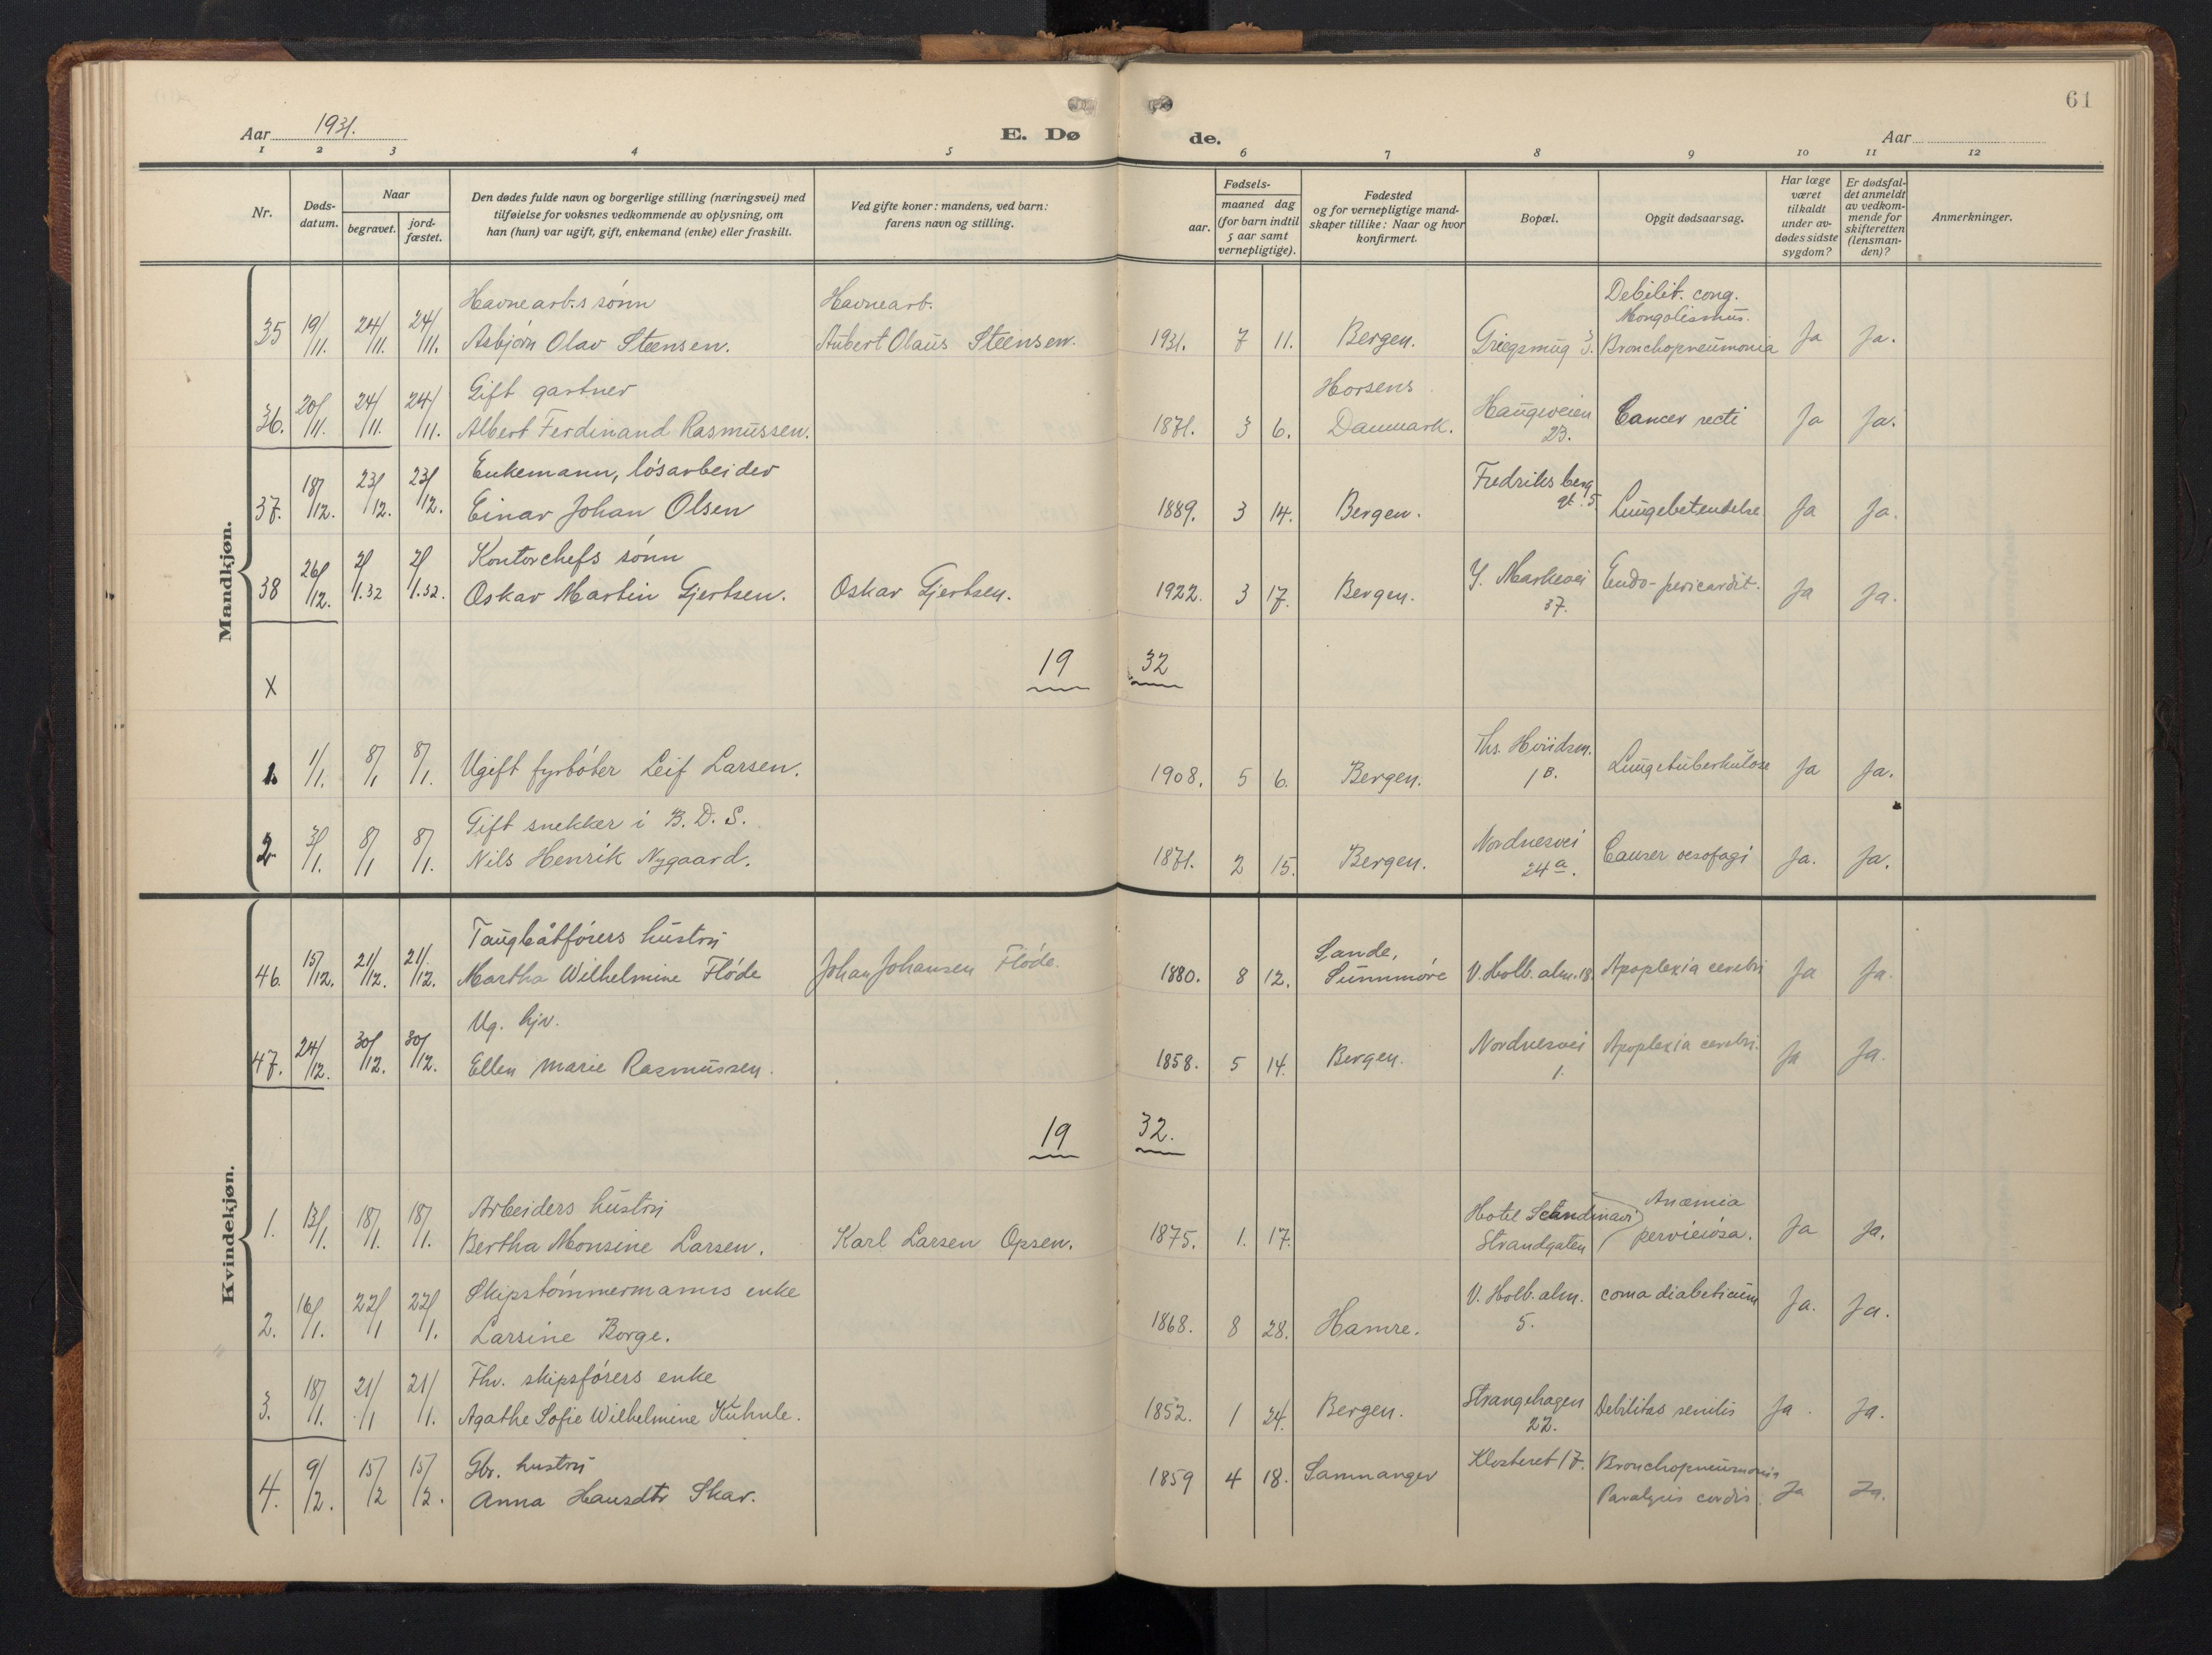 61
Aar 1931.
E. Dø de.
Aar
1 2 3 4 5 6 7 8 9 10 11 12
Nr.
Døds-datum.
Naar
begravet.
jord-fæstet.
Den dødes fulde navn og borgerlige stilling (næringsvei) med
tilføielse for voksnes vedkommende av oplysning, om
han (hun) var ugift, gift, enkemand (enke) eller fraskilt.
Ved gifte koner: mandens, ved barn:
farens navn og stilling.
Fødsels-
aar.
maaned dag
(for barn indtil
5 aar samt
vernepligtige).
Fødested
og for vernepligtige mand-
skaper tillike: Naar og hvor
konfirmert.
Bopæl.
Opgit dødsaarsag.
Har læge
været
tilkaldt
under av-
dødes sidste
sygdom?
Er dødsfal-
det anmeldt
av vedkom-
mende for
skifteretten
(lensman-
den)?
Anmerkninger.
Mandkjøn.
Havnearb.s sönn Havnearb. Debilit. cong.
Mongolismus.
35 19/11. 24/11. 24/11. Asbjørn Olav Steensen. Aubert Olaus Steensen. 1931. 7 11. Bergen. Griegsmug 3. Bronchopneumonia Ja Ja.
Gift gartner Horsens Haugeveien
36. 20/11. 24/11. 24/11. Albert Ferdinand Rasmussen. 1871. 3 6. Danmark. 23. Cancer recti Ja Ja.
Enkemann, lösarbeider Fredriksberg
37. 18/12. 23/12. 23/12. Einar Johan Olsen 1889. 3 14. Bergen. gt. 5 Lungebetendelse Ja Ja.
Kontorchefs sönn Y. Markevei
38 26/12. 2/1.32 2/1.32. Oskar Martin Gjertsen. Oskar Gjertsen. 1922. 3 17. Bergen. 37. Endo-pericardit. Ja Ja.
19 32
X
Ths. Hviidsm.
1. 1/1. 8/1 8/1. Ugift fyrböter Leif Larsen. 1908. 5 6. Bergen. 1 B. Lungetuberkulose Ja Ja.
Gift snekker i B. D. S. Nordnesvei
2 3/1. 8/1 8/1. Nils Henrik Nygaard. 1871. 2 15. Bergen. 24 a. Canser oesofagi Ja. Ja.
Kvindekjøn.
Taugbåtförers hustru Sande,
46. 15/12. 21/12. 21/12. Martha Wilhelmine Flöde Johan Johansen Flöde. 1880. 8 12. Sunnmöre V. Holb. alm. 18. Apoplexia cerebri Ja Ja.
Ug. hjv. Nordnesvei
47. 24/12. 30/12. 30/12. Ellen Marie Rasmussen. 1858. 5 14. Bergen. 1. Apoplexia cerebri. Ja Ja.
19 32.
Arbeiders hustru Hotel Scandinavi Anæmia
1. 13/1. 18/1. 18/1. Bertha Monsine Larsen. Karl Larsen Opsen. 1875. 1. 17. Strandgaten Ja Ja.
Skipstömmermanns enke V. Holb. alm. coma diabeticum
2. 16/1. 22/1 22/1. Larsine Borge. 1868. 8 28. Hamre. 5. Ja. Ja.
Fhv. skipsförers enke Strangehagen
3. 18/1. 21/1 21/1. Agathe Sofie Wilhelmine Kuhnle. 1852. 1 24. Bergen. 22. Debilitas senilis Ja. Ja.
Gbr. hustru Klosteret 17. Bronchopneumonia
4. 9/2. 15/2 15/2. Anna Hansdtr Skar. 1859 4 18. Samnanger Paralysis cordis. Ja Ja.